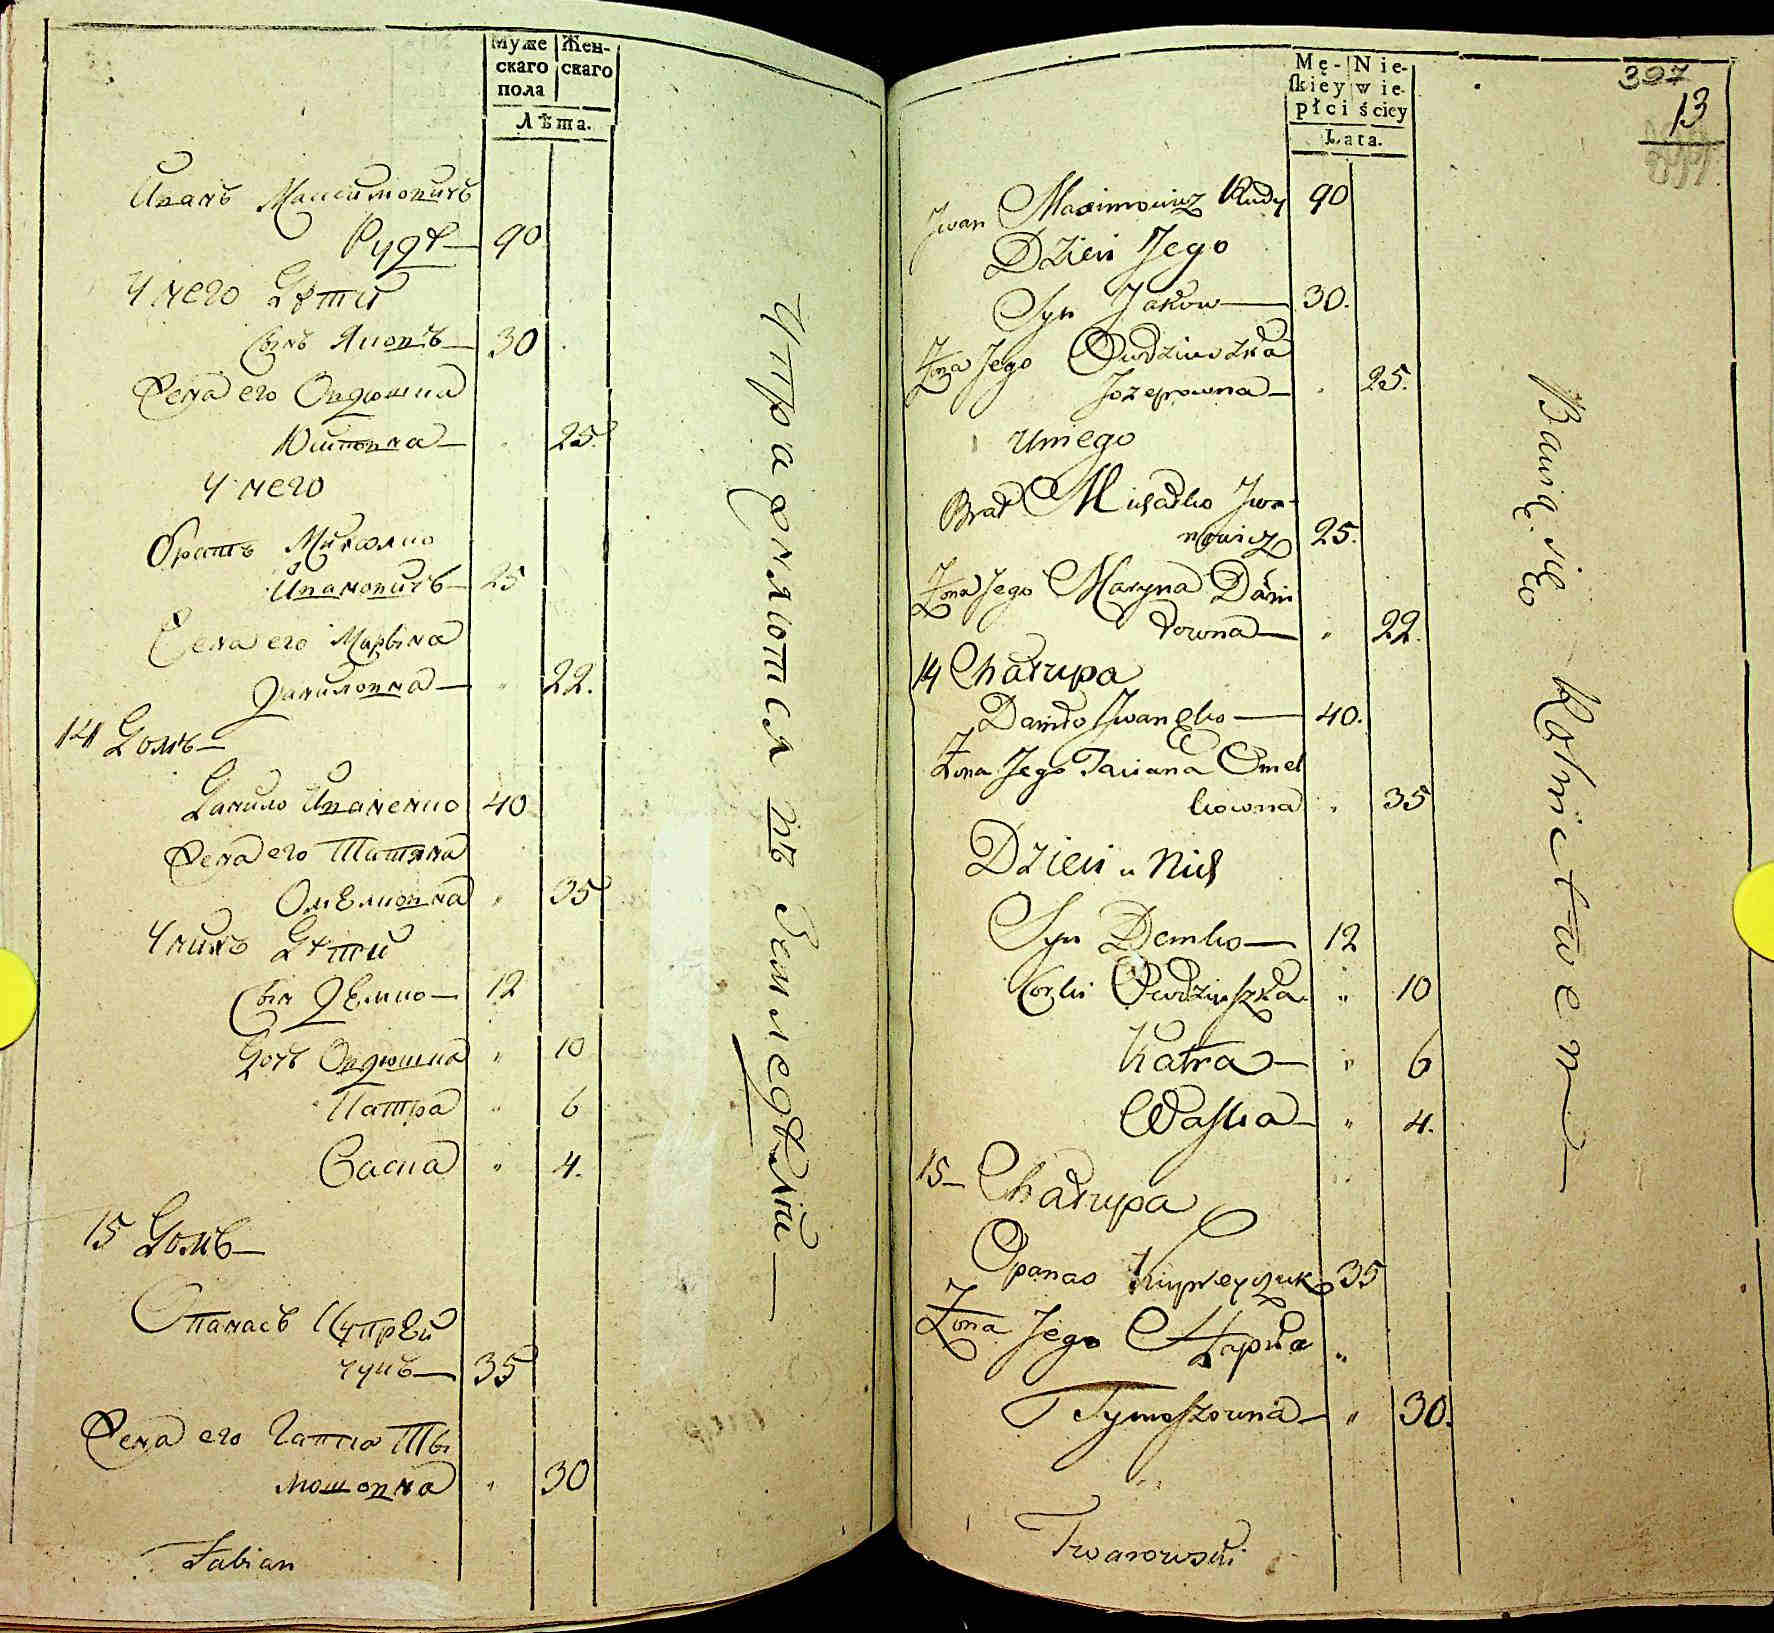 Муже
скаго
пола
Жен-
скаго
Лѣта.
Иванъ Максимовичъ
Рудѣ — 90
У него Дѣти
Сынъ Яковъ — 30
Жена его Овдюшка
Юзповна — 25
У него
братъ Михалко
Ивановичъ — 25
Жена его Марына
Даниловна — " 22.
14 Домъ —
Данило Иваненко 40
Жена его Татяна
Омелковна " 35
У нихъ Дѣти
Сын Демко — 12
Дочъ Овдюшка " 10
Катра " 6
Васка " 4.
15 Домъ —
Опанасъ Купрей
чукъ — 35
Жена его Гапка Ты
мошовна " 30
Fabian
Упражняются въ Земледѣлїи —
Mę-
skiey
płci
Nie-
wie-
ściey
Lata.
397
13
Jwan Maximowicz Rudy 90
Dzieci Jego
Syn Jakow — 30.
Żona Jego Owdziuszka
Jozepowna — " 25.
U niego
Brat Michałko Jwa-
nowicz 25.
Żona Jego Maryna Dani
łowna — " 22.
14 Chałupa
Daniło Jwanęko — 40.
Żona Jego Taciana Omel
kowna " 35
Dzieci u Nich
Syn Demko — 12
Corki Owdziuszka " 10
Katra — " 6
Waska — " 4.
15 — Chałupa
Opanas Kuprejczuk 35
Żona Jego Hapka "
Tymoszowna — " 30.
Twarowski
Bawią się Rolnictwem —